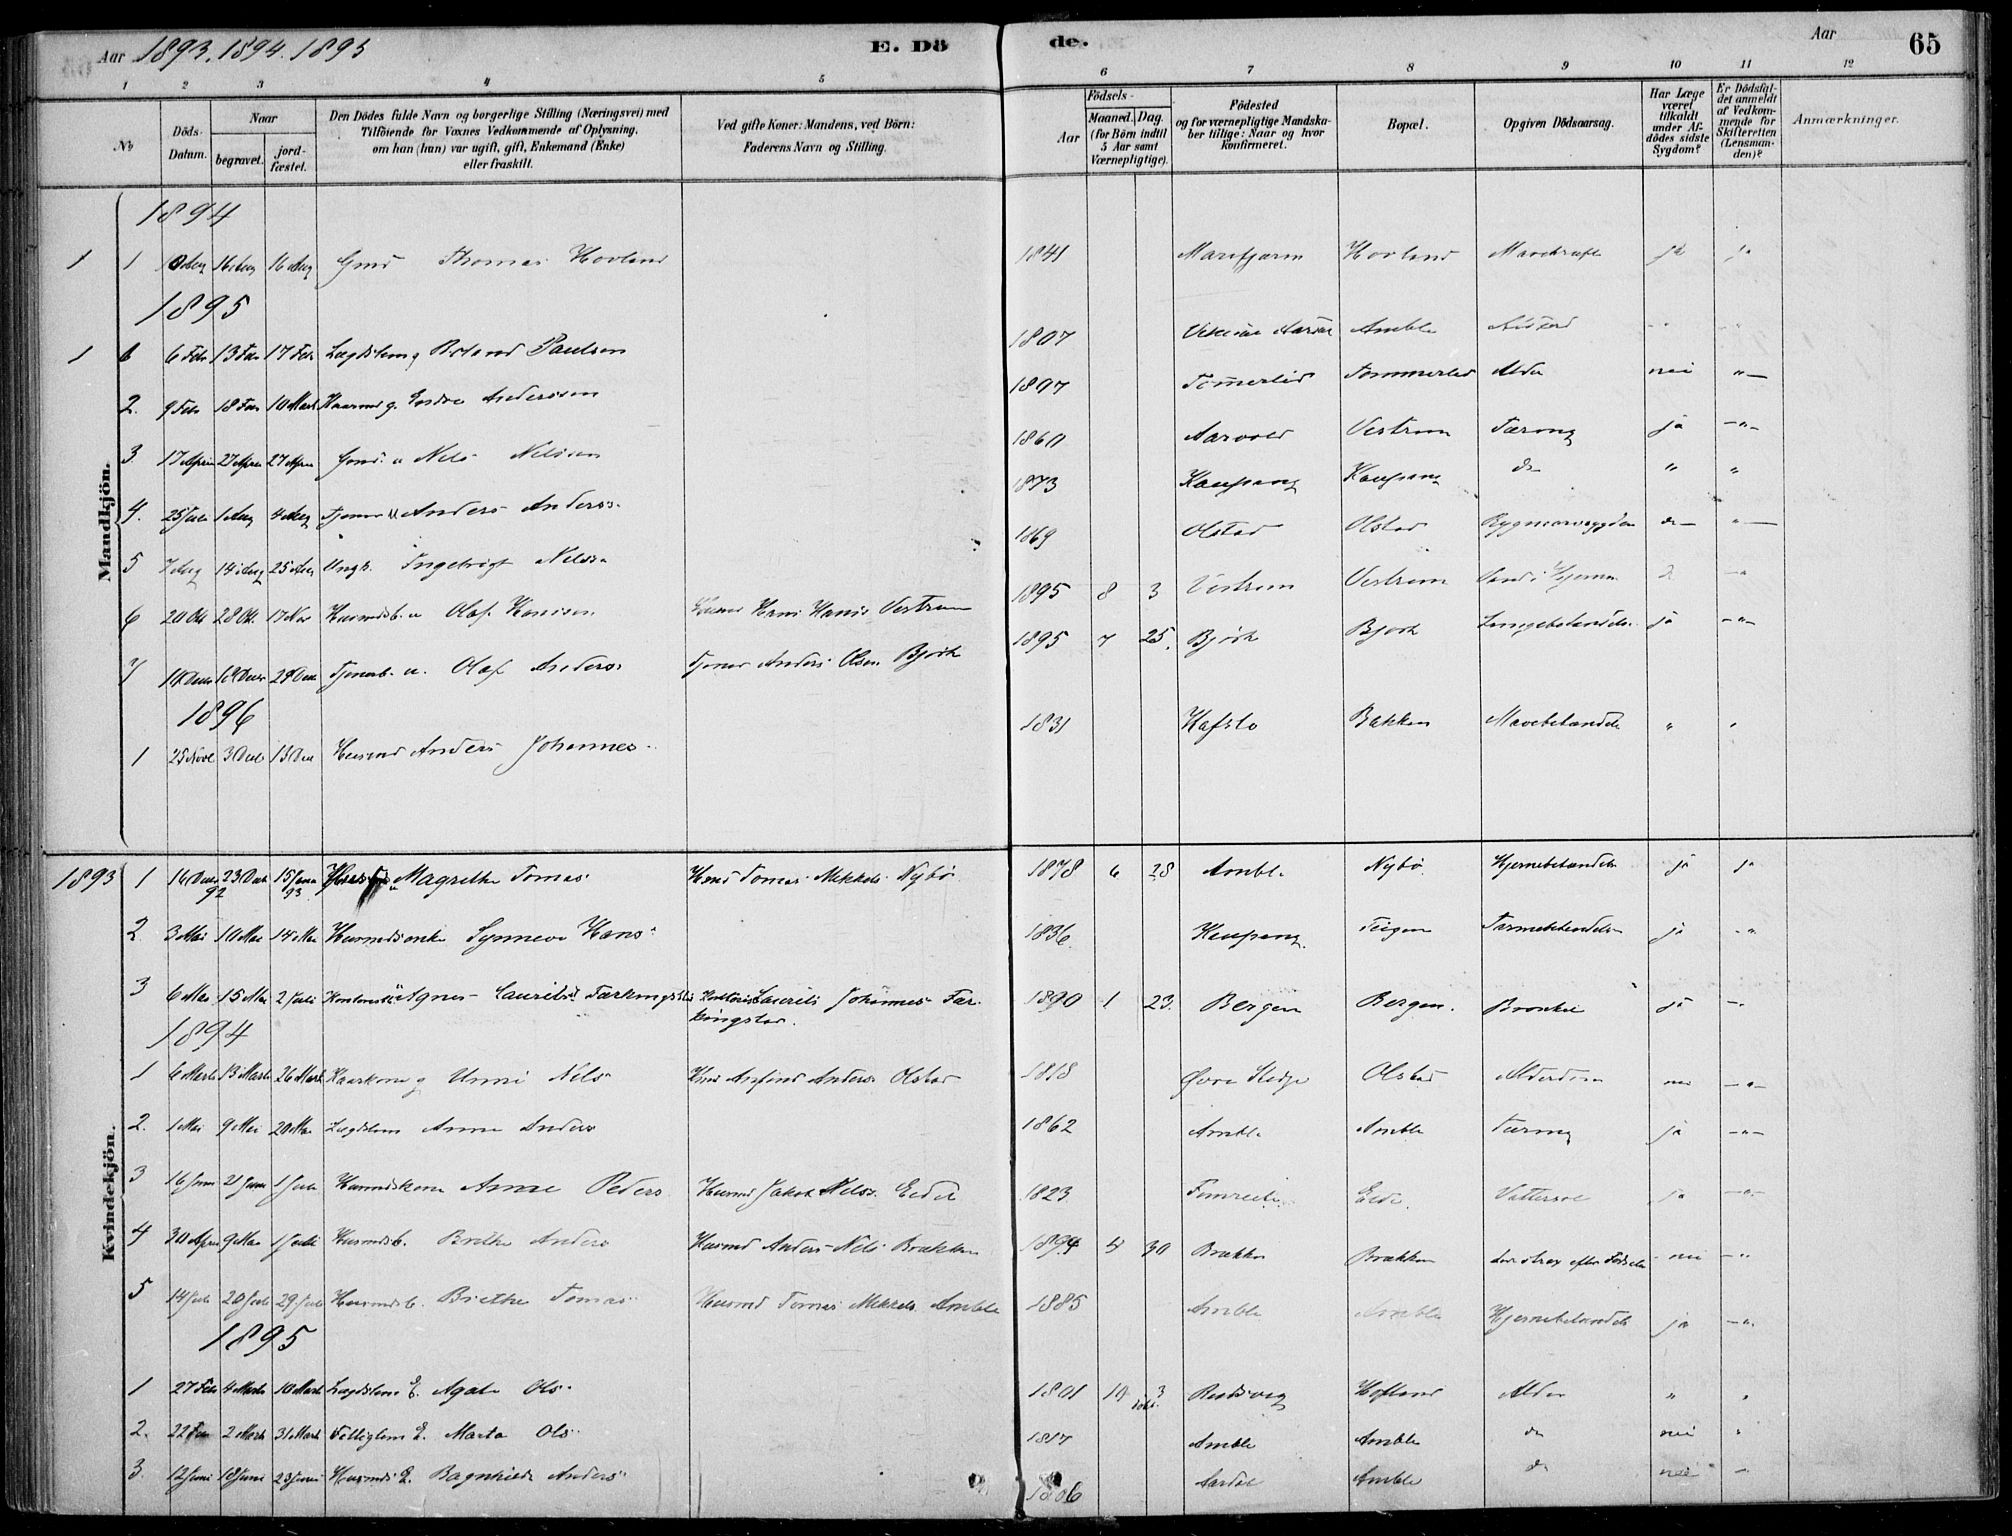 Aar 1893. 1894. 1895
E. Dö
de.
Aar
65
1 2 3 4 5 6 7 8 9 10 11 12
No
Döds-Datum.
Naar
begravet.
jord-fæstet.
Den Dödes fulde Navn og borgerlige Stilling (Næringsvei) med
Tilföiende for Voxnes Vedkommende af Oplysning,
om han (hun) var ugift, gift, Enkemand (Enke)
eller fraskilt.
Ved gifte Koner: Mandens, ved Börn:
Faderens Navn og Stilling.
Födsels-
Aar
Maaned. Dag.
(for Börn indtil
5 Aar samt
Værnepligtige).
Födested
og for værnepligtige Mandska-
ber tillige: Naar og hvor
Konfirmeret.
Bopæl.
Opgiven Dödsaarsag.
Har Læge
været
tilkaldt
under Af-
dödes sidste
Sygdom?
Er Dödsfal-
det anmeldt
af Vedkom-
mende for
Skifteretten
(Lensman-
den)?
Anmærkninger.
Mandkjön.
1894
1 1 10 Aug 16 Aug 16 Aug Gmd Thomas Hovland 1841 Marifjæren Hovland ja ja
1895
1 6 Feb 13 Feb 17 Feb Lægdslem g Paulsen 1807 Amble
2. 9 Feb 18 Feb 10 Marts Kaarmd g. Anderssen 1807 Tommerlid Alder nei "
3 17 April 27 April 27 April Gmd. u Nels Nelssen 1860 Vestrem Tæring ja "
4. 25 Juli 1 Aug 4 Aug Tjener u Anders Anders. 1873 Kaupang Kaupang do " "
5 7 Aug 14 Aug 25 Aug Ungk. Ingebrigt Nelss. 1869 Olstad Olstad Rygmarvssygdom do "
6 20 Okt 28 Okt. 17 Nov Husmdsb. u Olaf Hansen Husmd Hans Hanss Vestrem 1895 8 3 Vestrem Vestrem Vand i Hjernen do "
7 29 Dec Tjenerb. u. Olaf Anders. Tjener Anders Olsen Bjørk 1895 7 25. Bjørk Bjørk Lungebetændelse ja "
1896
1 25 Nov 3 Dec 13 Dec Husmd Anders Johannes. 1831 Hafslo Bakken Mavebetændelse " "
Kvindekjön.
1893 1 16 Dec 92 23 Dec 15 Janr 93 u Magrethe Tomas. Hmd Tomas Mikkels. Nybø 1878 6 28 Amble Nybø. Hjernebetændelse ja ja
2. 3 Mai 10 Mai 14 Mai Husmdsenke Synneve Hans. 1836. Kaupang Teigen Tarmebetændelse ja "
3 6 Mai 15 Mai 2 Juli Agnes Laurits. Færkingstad Laurits Johannes. Fær-
kingstad. 1890 1 23. Bergen Bergen. Bronkit ja "
1894
1 6 Marts 13 Marts 26 Marts Kaarkone g Unni Nels. Kmd Arfind Anders. Olstad 1818 Øvre Hedje Olstad Alderdom nei "
2. 1 Mai 9 Mai 20 Mai Lægdslem Anna Anders 1862 Amble Amble Tæring ja "
3 16 Juni 21 Juni 1 Juli Husmdskone Anne Peders Husmd Jakob Nelss. Eide 1823 Eide. Vattersot ja "
4 30 April 9 Mai 1 Juli Husmdsb. Brithe Anders Husmd Anders Nels Brækken 1894 4 30 Brække Brækken døde strax efter Fødselen nei "
5 14 Juli 20 Juli 29 Juli Husmdsb. Brithe Tomas. Husmd Tomas Mikkels. Amble 1885 Amble Amble Hjernebetændelse ja "
1895
1 27 Feb 4 Marts 10 Marts Lægdslem E. Agate Ols. 1801 10 3 Hofland Alder " "
2. 22 Feb 2 Marts 31 Marts Fattiglem E. Marta Ols. 1817 Amble Amble do nei "
3. 12 Juni 18 Juni 23 Juni Husmds E. Ragnhilde Anders. 1806 Aardal Amble do nei "